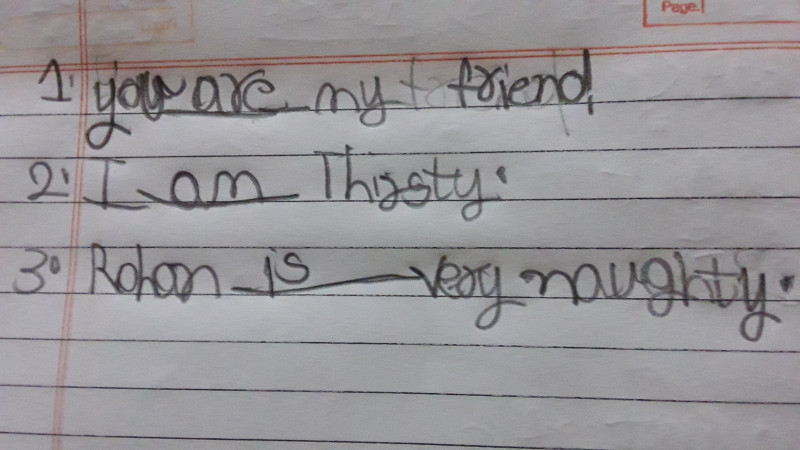 Page.
1. you are my friend.
2. I am Thirsty.
3. Rohan is very naughty.